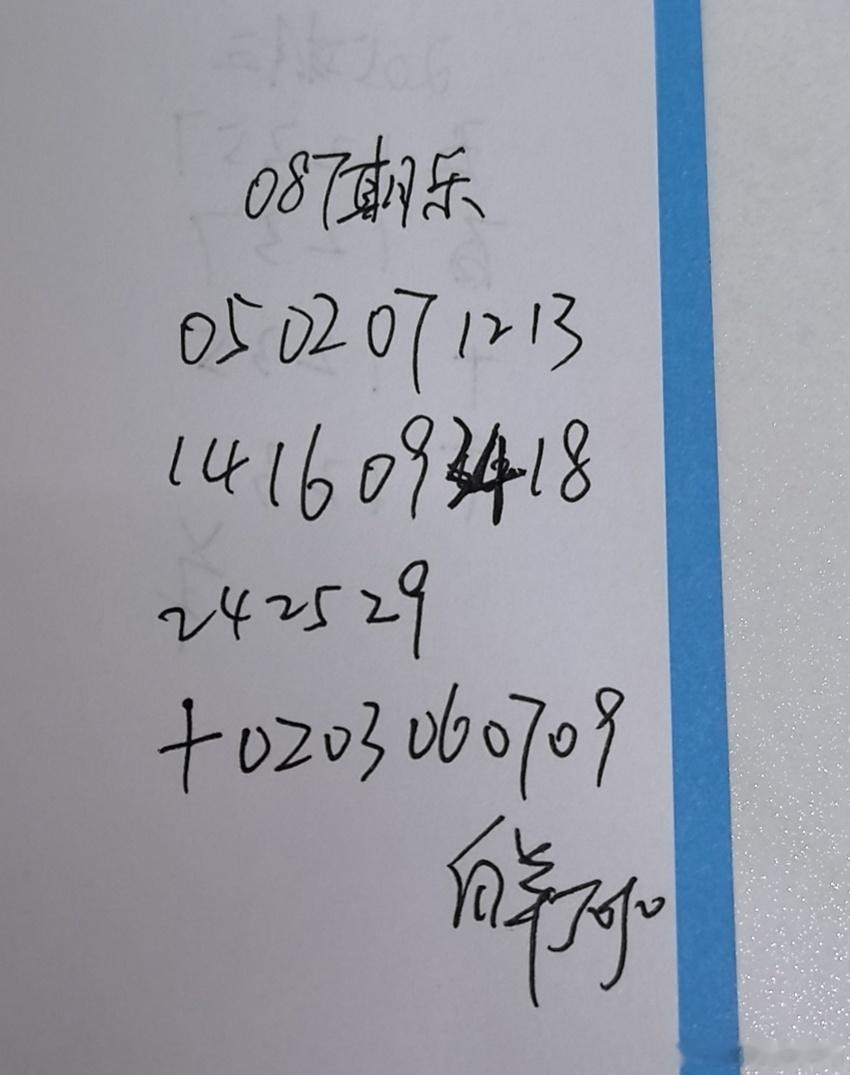 087期乐
05 02 07 12 13
14 16 09 18
24 25 29
+02 03 06 07 09